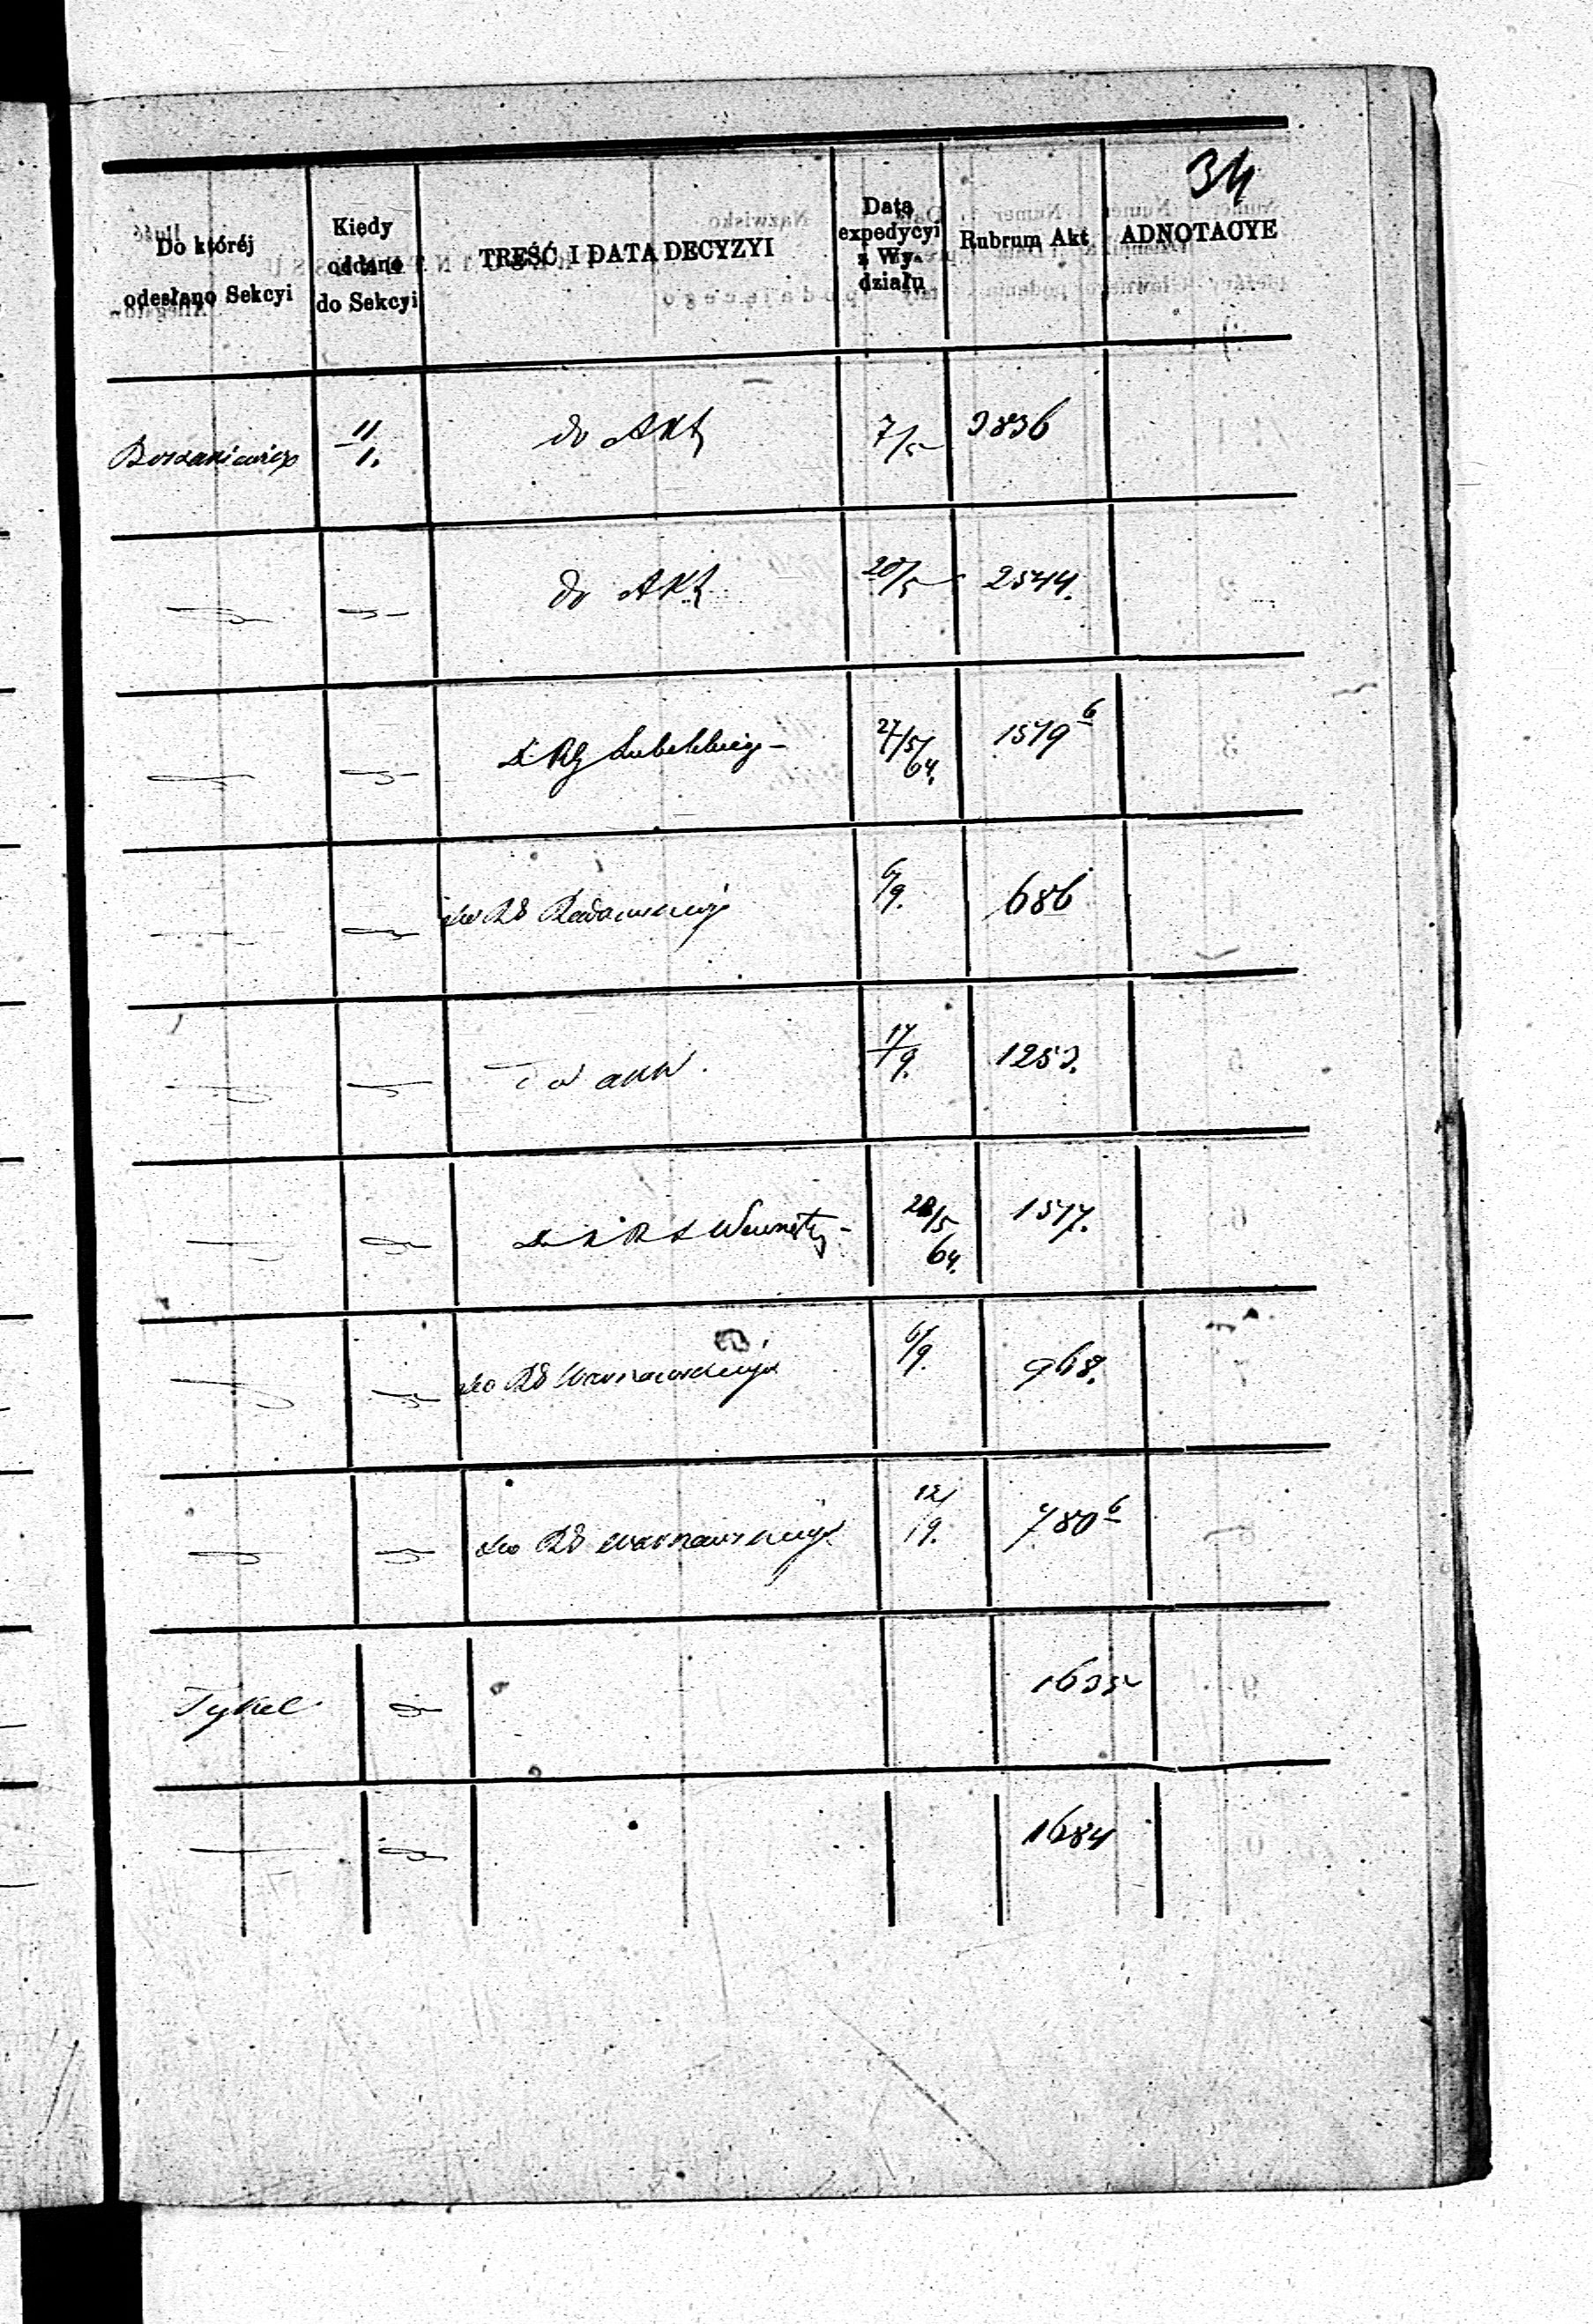 34
Do któréj odesłano Sekcyi
Kiedy oddano do Sekcyi
TREŚĆ I DATA DECYZYI
Data expedycyi z Wydziału
Rubrum Akt
ADNOTACYE
11/1. do Akt 7/5 3836
do Akt 20/5 2544.
Lubelskiego 27/5/64. 1579 6
do RG Radomskiego 6/9. 686
do akt. 17/9. 1253.
28/5 64. 1577.
do RG Warszawskiego 6/9. 968.
do RG Warszawskiego 12/9. 780 6
Tykel 1635
1684